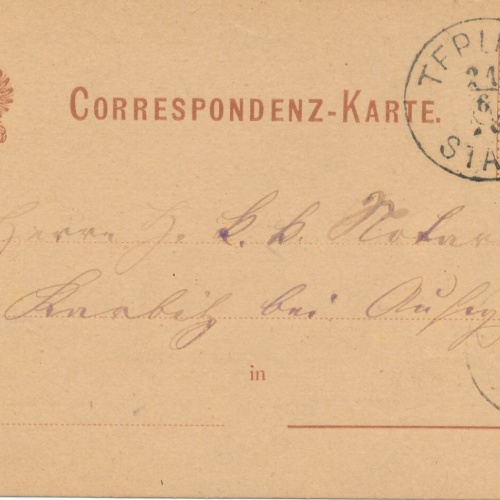 CORRESPONDENZ-KARTE.
TEPLI
21
6
STA
Herrn H. k. k. Notar
Karbitz bei Aussig
in